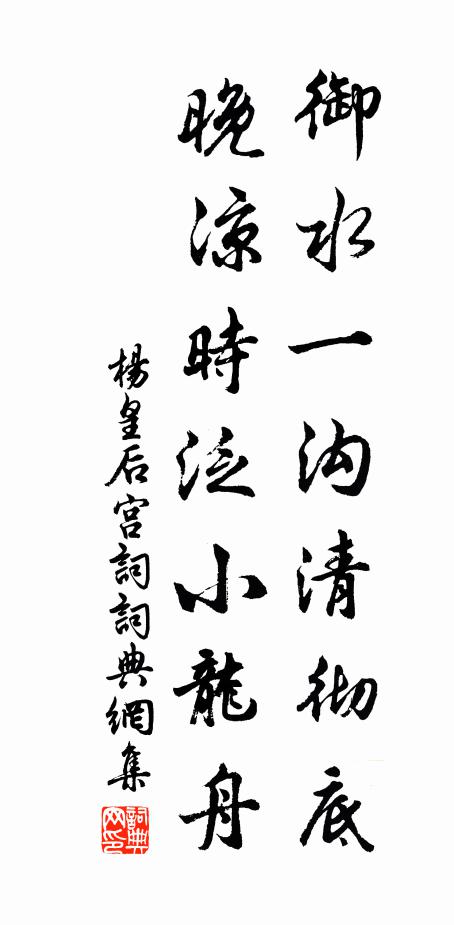 御水一沟清彻底
晚凉時泛小龍舟
楊皇后宫詞詞典網集
詞典网印